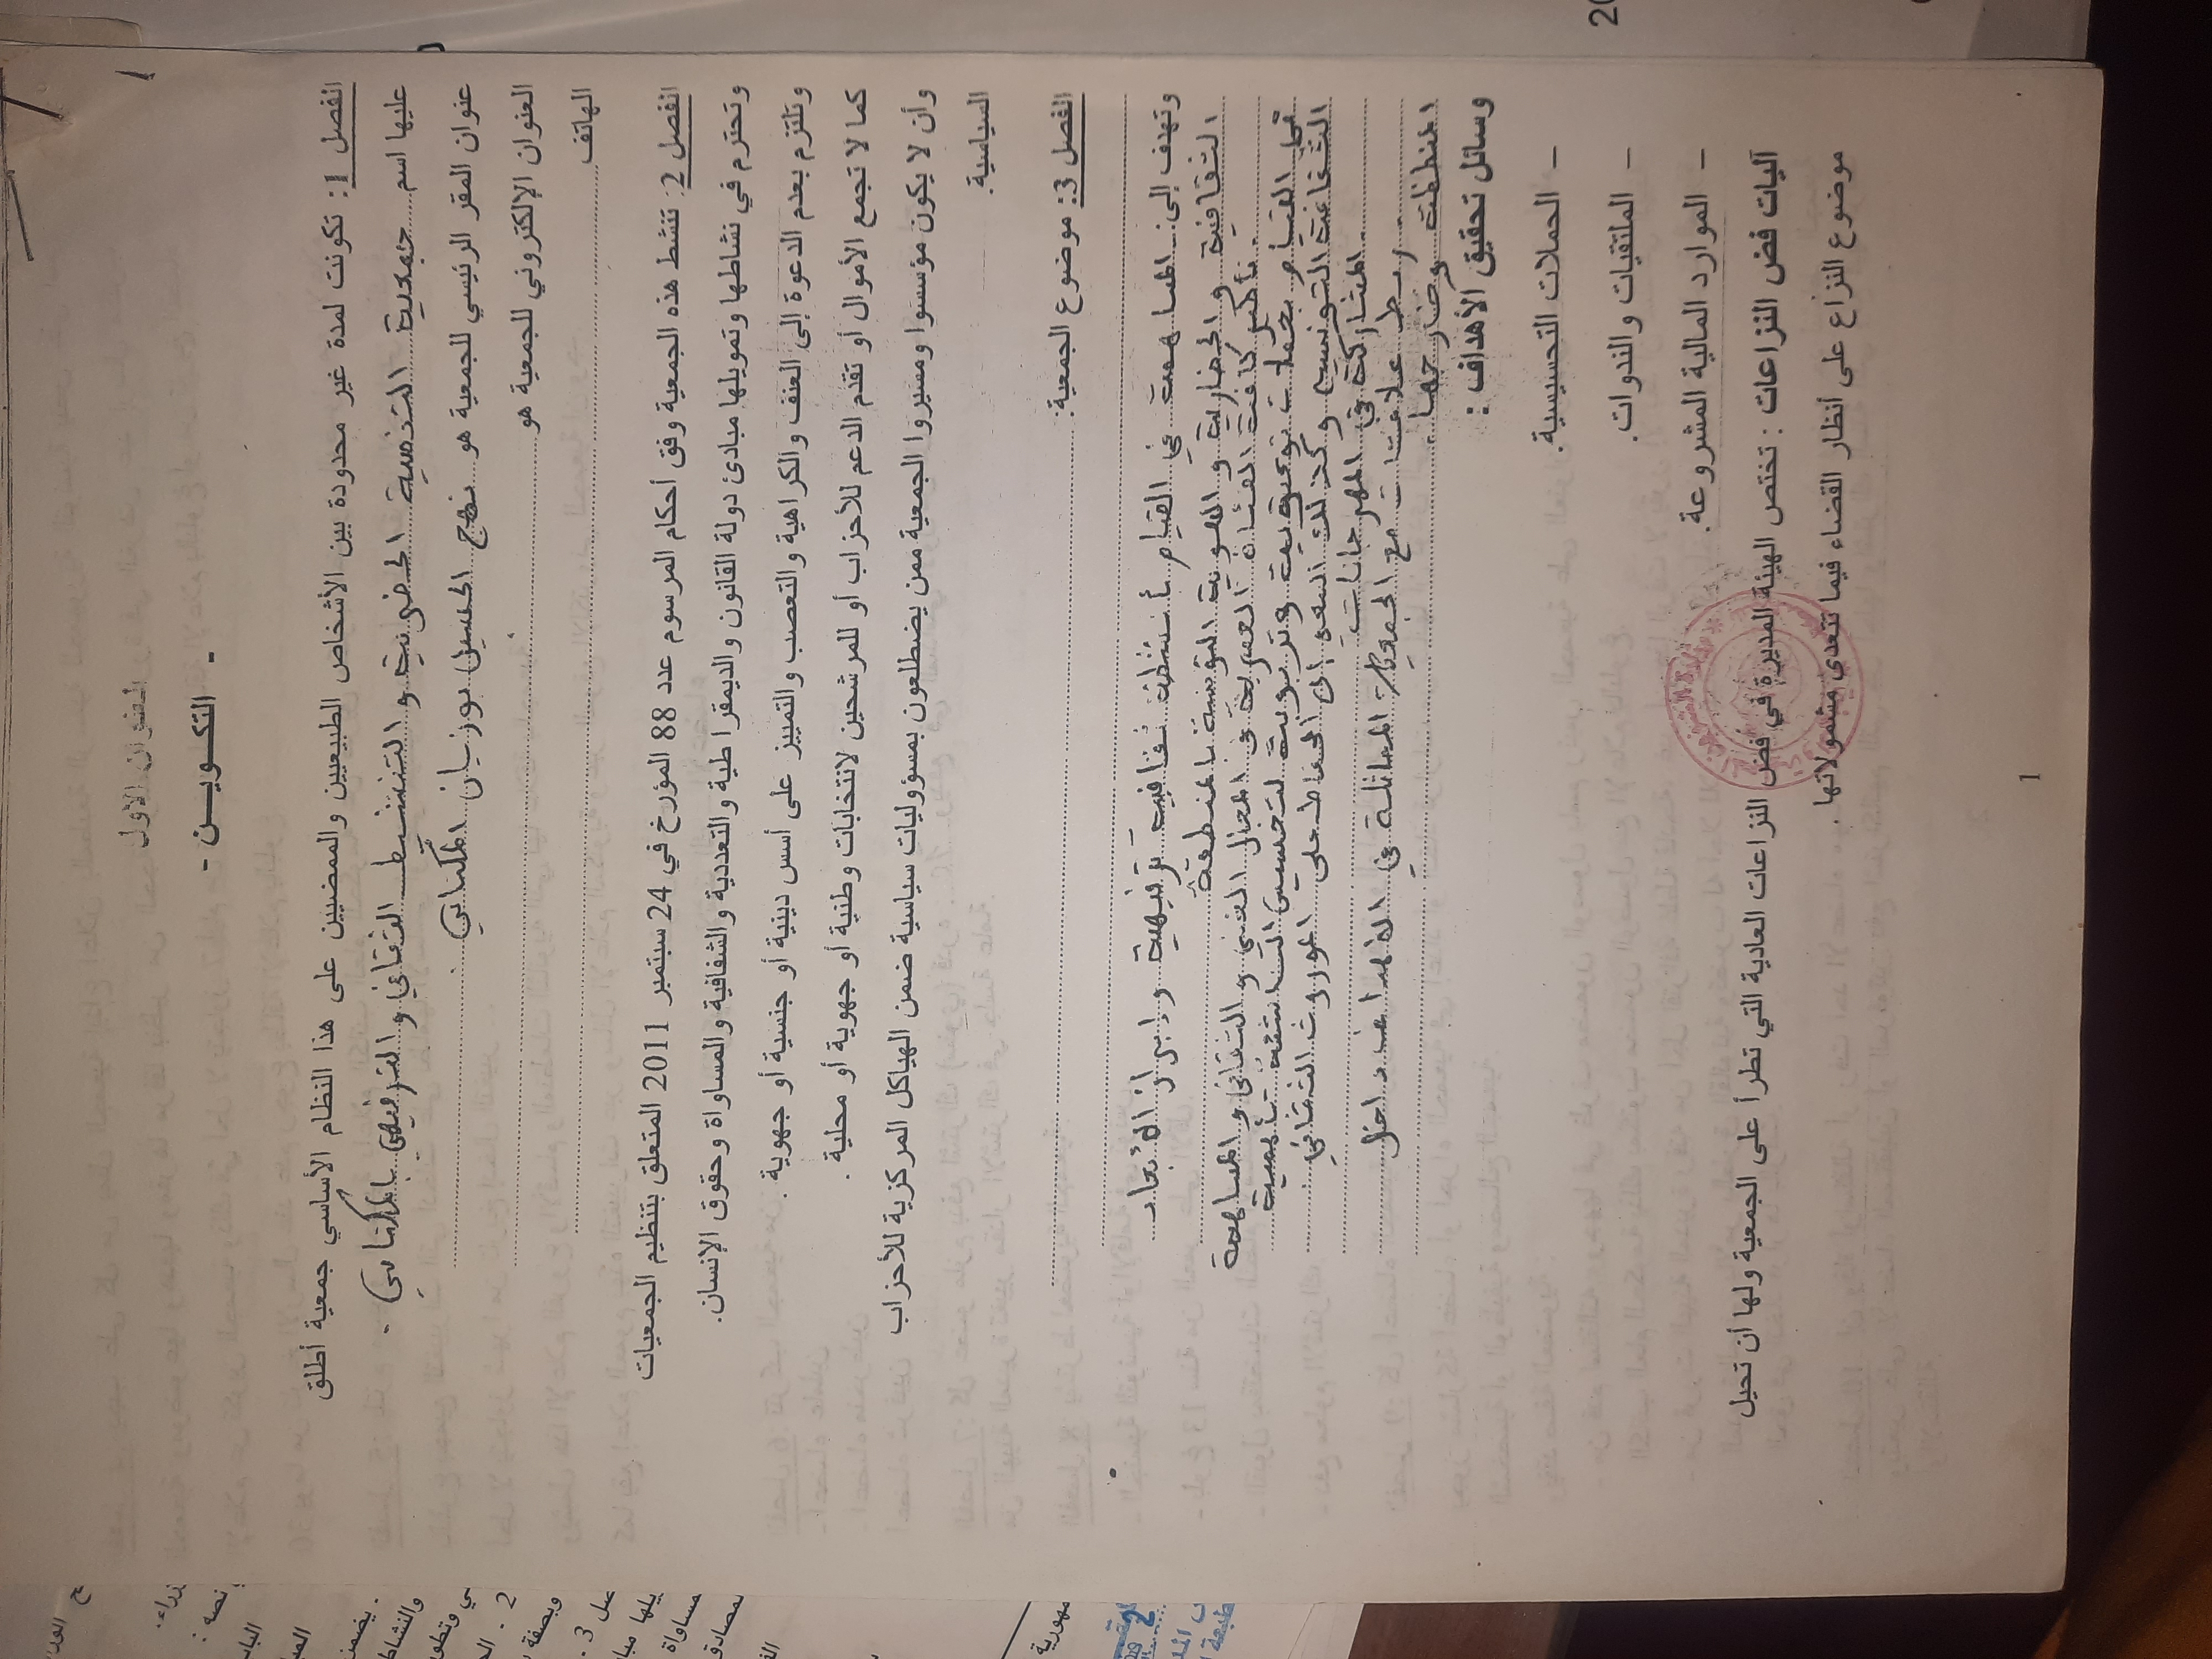 العنوان الأول
- التكويـــن -
الفصل 1: تكونت لمدة غير محدودة بين الأشخاص الطبيعيين والممضيين على هذا النظام الأساسي جمعية أطلق
عليها اسم جمعية التنمية الحضرية و التنشيط الثقافي و الترفيهي بالمكناسي.
عنوان المقر الرئيسي للجمعية هو نهج الحسين بوزيان المكناسي
العنوان الإلكتروني للجمعية هو
الهاتف
الفصل 2: تنشط هذه الجمعية وفق أحكام المرسوم عدد 88 المؤرخ في 24 سبتمبر 2011 المتعلق بتنظيم الجمعيات
وتحترم في نشاطها وتمويلها مبادئ دولة القانون والديمقراطية والتعددية والشفافية والمساواة وحقوق الإنسان.
وتلتزم بعدم الدعوة إلى العنف والكراهية والتعصب والتمييز على أسس دينية أو جنسية أو جهوية.
كما لا تجمع الأموال أو تقدم الدعم للأحزاب أو للمرشحين لانتخابات وطنية أو جهوية أو محلية.
وأن لا يكون مؤسسوا ومسيروا الجمعية ممن يضطلعون بمسؤوليات سياسية ضمن الهياكل المركزية للأحزاب
السياسية.
الفصل 3: موضوع الجمعية:
وتهدف إلى: المساهمة في القيام بأنشطة ثقافية ترفيهية و إبراز الأبعاد
الثقافية و الحضارية و الهوية التونسية بالمنطقة
تأطير كافة الفئات العمرية في المجال الفني و الثقافي و المساهمة
في القيام بحملات توعوية و تربوية لتحسيس الناشئة بأهمية
الثقافة التونسية و كذلك السعي إلى الحفاظ على الموروث الثقافي
المشاركة في المهرجانات
ربط علاقات مع الجمعيات المماثلة في الأهداف داخل
المنطقة و خارجها.
وسائل تحقيق الأهداف:
– الحملات التحسيسية.
– الملتقيات والندوات.
– الموارد المالية المشروعة.
آليات فض النزاعات: تختص الهيئة المديرة في فض النزاعات العادية التي تطرأ على الجمعية ولها أن تحيل
موضوع النزاع على أنظار القضاء فيما تتعدي مشمولاتها.
1